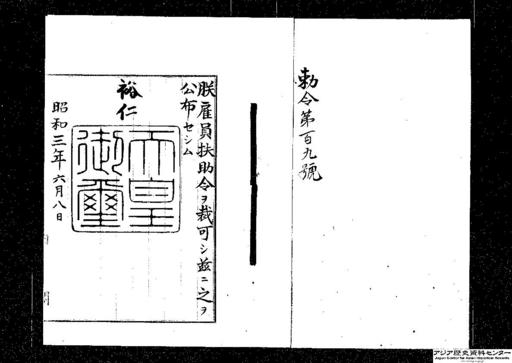 勅令第百九號
朕雇員扶助令ヲ裁可シ茲ニ之ヲ
公布セシム
裕仁
天皇
御璽
昭和三年六月八日
内
閣
アジア歴史資料センター
Japan Center for Asian Historical Records